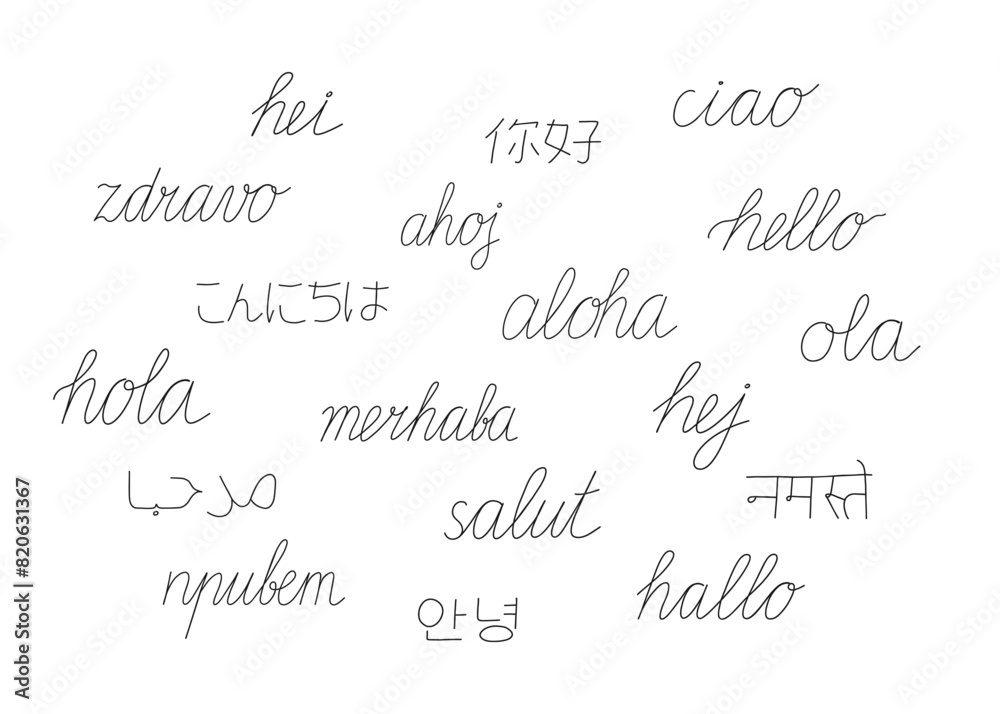 hei
ciao
你好
zdravo
ahoj
hello
こんにちは
aloha
ola
hola
merhaba
hej
مرحبا
salut
नमस्ते
привет
안녕
hallo
Adobe Stock | #820631367